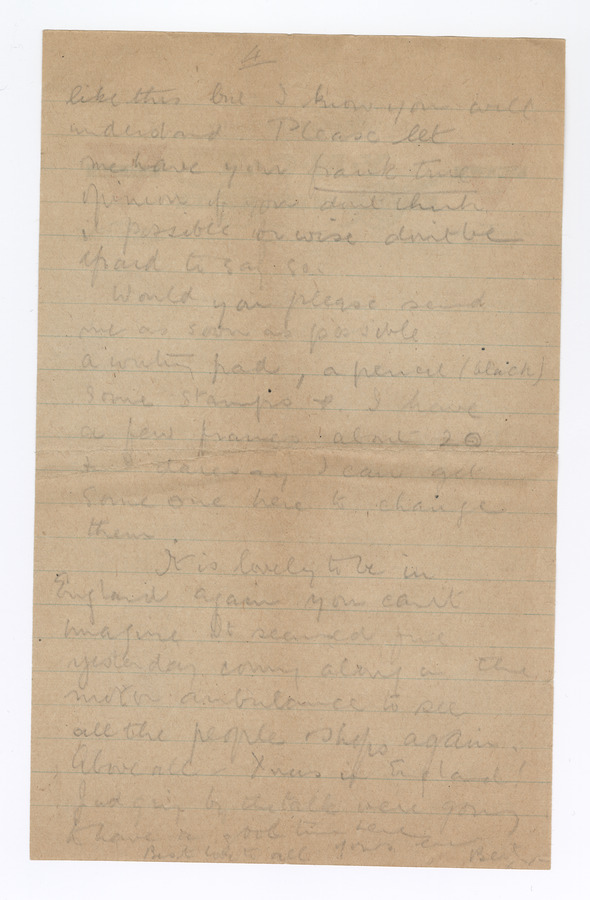 4
like this but I know you will
understand. Please let
me have your frank true
opinion if you dont think
it possible or wise dont be
afraid to say so.
Would you please send
me as soon as possible
a writing pad, a pencil (black)
some stamps I have
a few francs about 20
& I daresay I can get
some one here to change
them.
It is lovely to be in
England again you can't
imagine. It seemed fine
yesterday coming along in the
motor ambulance to see
all the people & shops again.
Above all Xmas in England!
Judging by the talk were going
to have a good time here
Best to all yours ever Bert